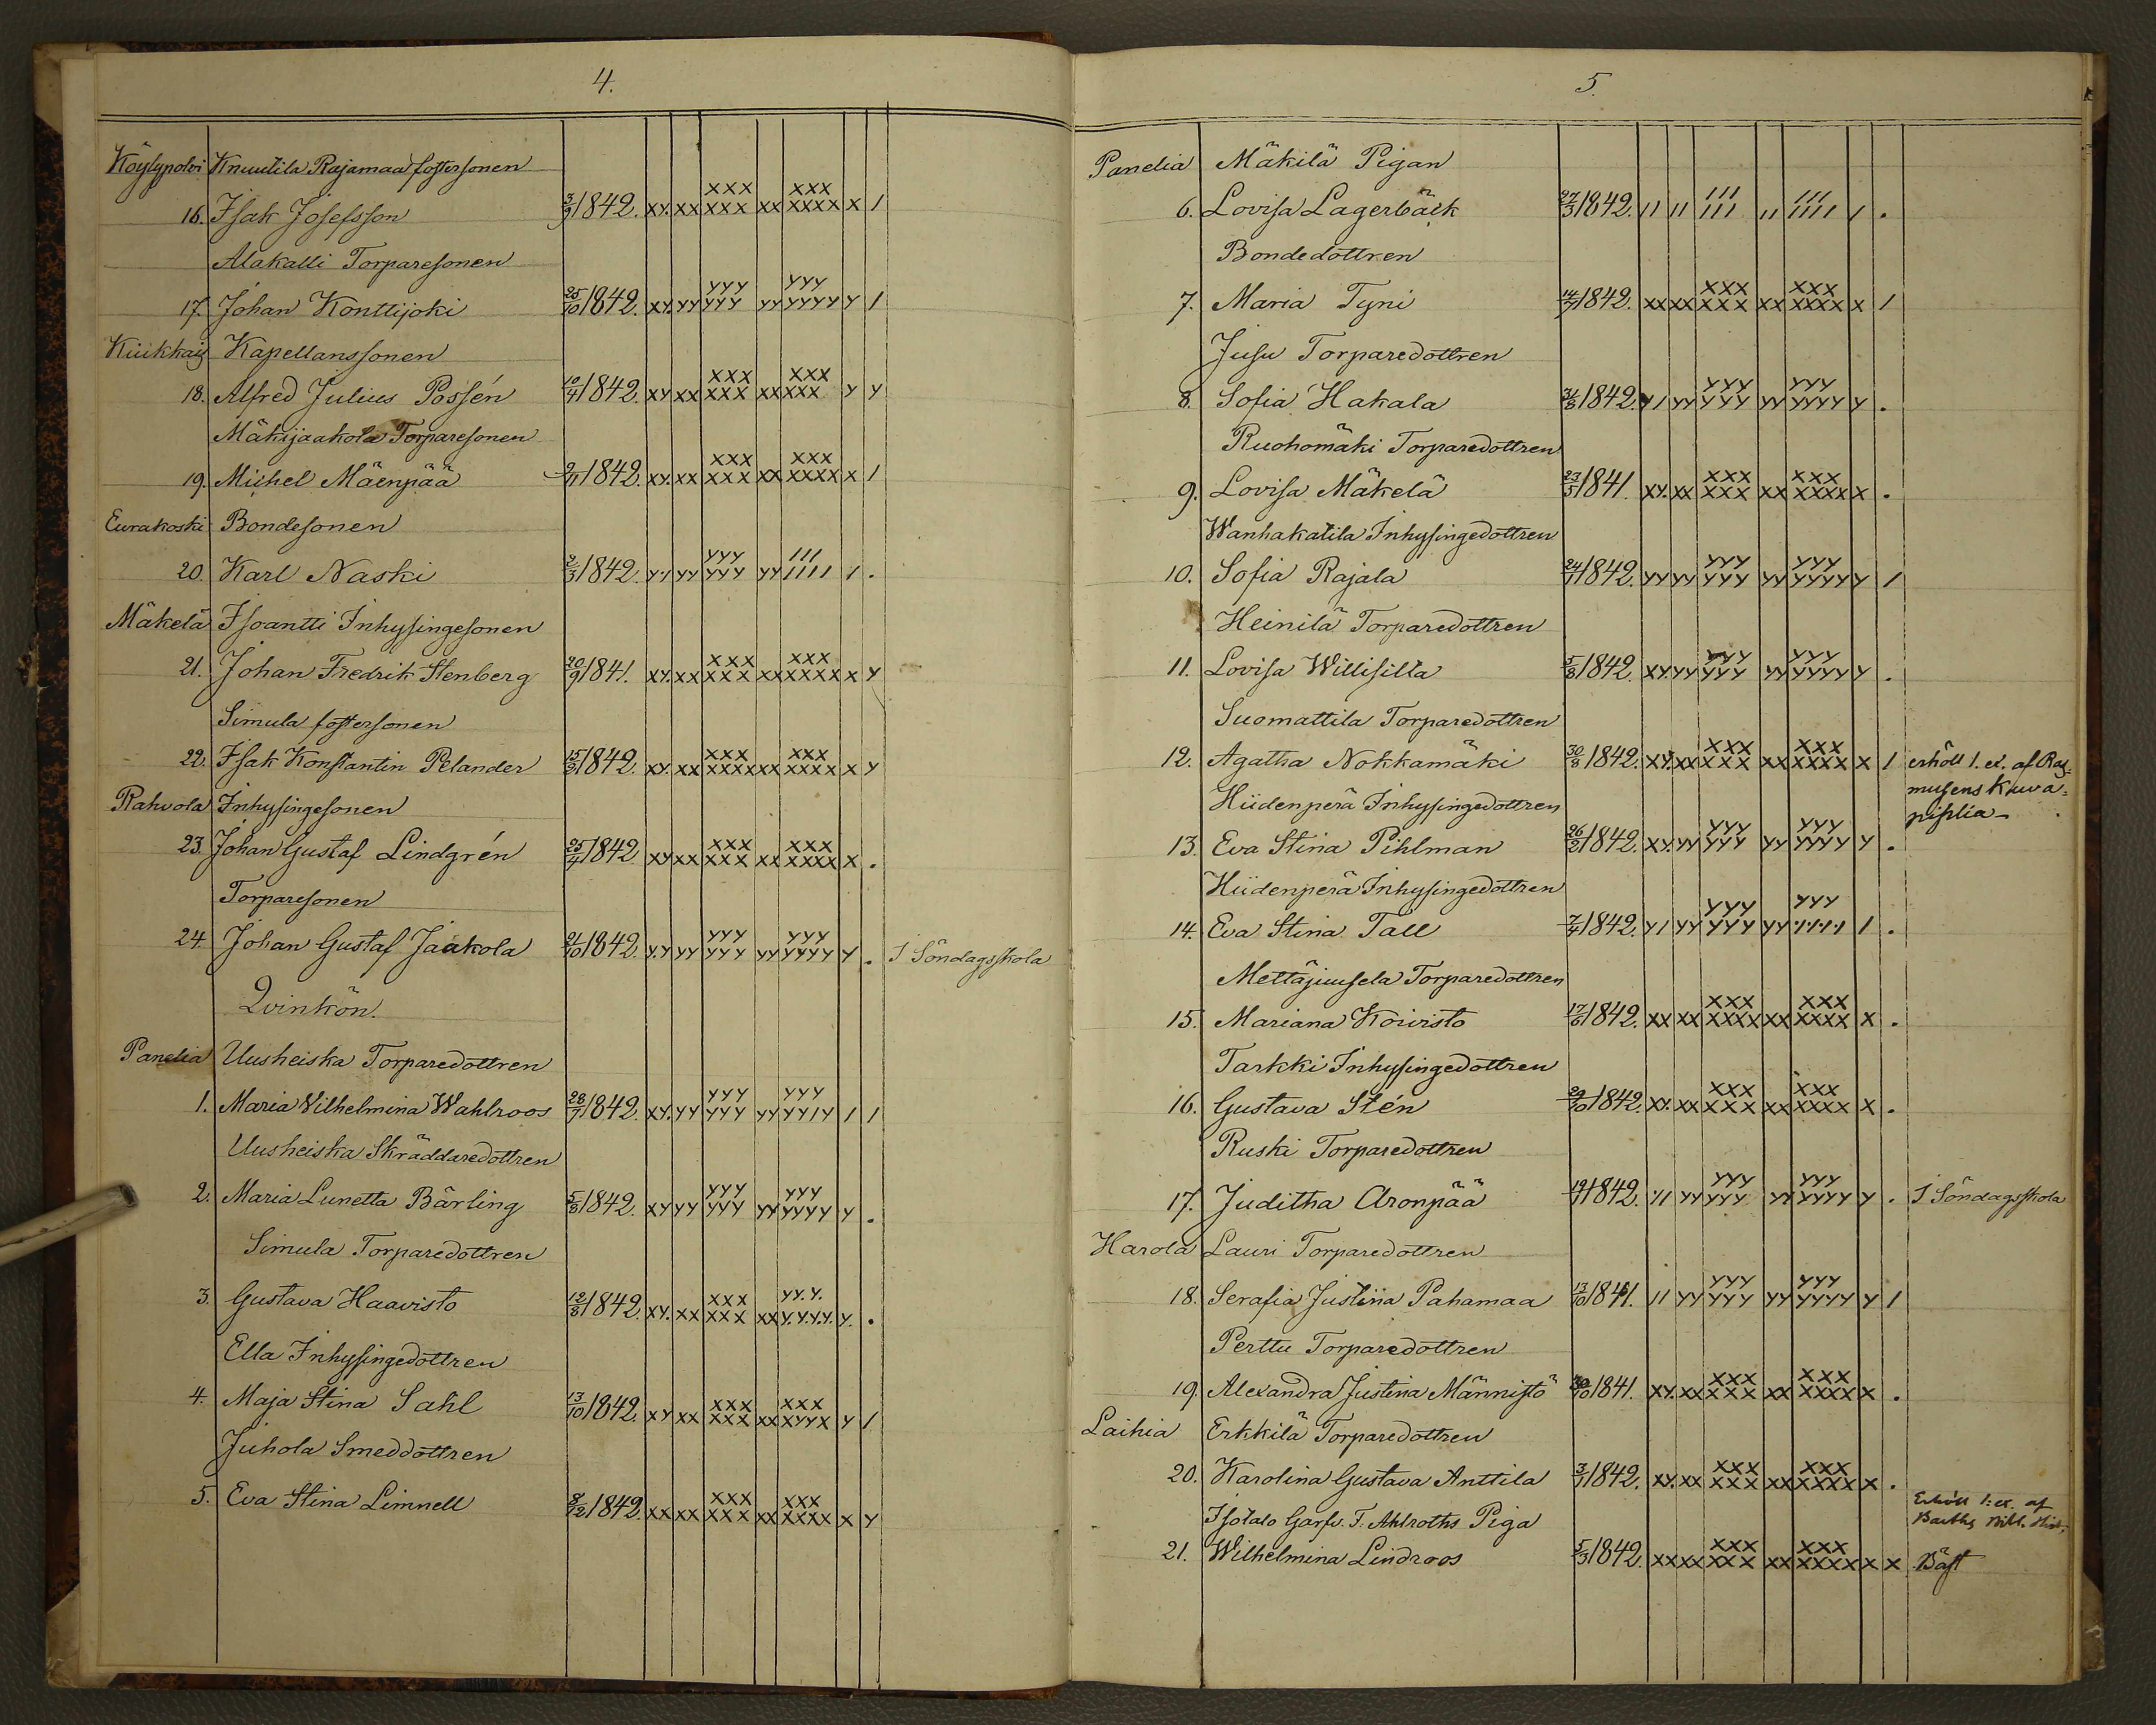 4.
Köylypolvi Knuutila Rajamaa fostersonen
16. Isak Josefsson 3/9 1842. xy. xx xxx xxx xx xxx xxxx x 1
Alakalli Torparesonen
17. Johan Konttijoki 25/10 1842. xy. yy yyy yyy yy yyy yyyy y 1
Kiukkais Kapellanssonen
18. Alfred Julius Possén 10/4 1842. xy xx xxx xxx xx xxx xxx y y
Mäkijaakola Torparesonen
19. Michel Mäenpää 2/11 1842. xy. xx xxx xxx xx xxx xxxx x 1
Eurakoski Bondesonen
20. Karl Naski 2/3 1842. y1 yy yyy yyy yy 111 1111 1 .
Mäkelä Isoantti Inhysingesonen
21. Johan Fredrik Stenberg 20/9 1841. xy. xx xxx xxx xx xxx xxxx x y
Simula fostersonen
22. Isak Konstantin Pelander 15/9 1842. xy. xx xxx xxxx xx xxx xxxx x y
Rahvola Inhysingesonen
23. Johan Gustaf Lindgrén 25/4 1842 xy xx xxx xxx xx xxx xxxx x .
Torparesonen
24. Johan Gustaf Jaakola 21/10 1842. yy yy yyy yyy yy yyy yyyy y . I Söndagsskola
Qvinkön.
Panelia Uusheiska Torparedottren
1. Maria Vilhelmina Wahlroos 28/7 1842. xy. yy yyy yyy yy yyy yy1y 1 1
Uusheiska Skräddaredottren
2. Maria Lunetta Bärling 5/8 1842. xy yy yyy yyy yy yyy yyyy y .
Simula Torparedottren
3. Gustava Haavisto 12/8 1842. xy. xx xxx xxx xx yy.y. y.y.y.y. y. .
Ella Inhysingedottren
4. Maja Stina Sahl 13/10 1842. xy xx xxx xxx xx xxx xyyx y 1
Juhola Smeddottren
5. Eva Stina Limnell 8/12 1842. xx xx xxx xxx xx xxx xxxx x y
5.
Panelia Mäkilä Pigan
6. Lovisa Lagerbäck 27/3 1842. 11 11 111 111 11 111 1111 1 .
Bondedottren
7. Maria Tyni 14/7 1842. xx xx xxx xxx xx xxx xxxx x 1
Jusu Torparedottren
8. Sofia Hakala 1842. y1 yy yyy yyy yy yyy yyyy y .
Ruohomäki Torparedottren
9. Lovisa Mäkelä 23/5 1841. xy. xx xxx xxx xx xxx xxxx x .
Wanhakatila Inhysingedottren
10. Sofia Rajala 24/1 1842. yy yy yyy yyy yy yyy yyyy y 1
Heinilä Torparedottren
11. Lovisa Willisilta 5/8 1842. xy. yy yyy yyy yy yyy yyyy y .
Suomattila Torparedottren
12. Agatha Nokkamäki 30/8 1842. xy. xx xxx xxx xx xxx xxxx x 1 erhöll 1. ex. af Ras-
musens Kuva-
piplia
Hiidenperä Inhysingedottren
13. Eva Stina Pihlman 26/2 1842. xy. yy yyy yyy yy yyy yyyy y .
Hiidenperä Inhysingedottren
14. Eva Stina Tall 7/4 1842. y1 yy yyy yyy yy yyy 1111 1 .
Mettäjuusela Torparedottren
15. Mariana Koivisto 17/6 1842. xx xx xxx xxxx xx xxx xxxx x .
Tarkki Inhysingedottren
16. Gustava Stén 29/10 1842. xy. xx xxx xxx xx xxx xxxx x .
Ruski Torparedottren
17. Juditha Aronpää 19/7 1842. 11 yy yyy yyy yy yyy yyyy y . I Söndagsskola
Harola Lauri Torparedottren
18. Serafia Justina Pahamaa 13/10 1841. 11 yy yyy yyy yy yyy yyyy y 1
Perttu Torparedottren
19. Alexandra Justina Männistö 30/10 1841. xy. xx xxx xxx xx xxx xxxx x .
Laihia Erkkilä Torparedottren
20. Karolina Gustava Anttila 3/1 1842. xy. xx xxx xxx xx xxx xxxx x .
Isotalo Garfv. F. Ahlroths Piga
Erhöll 1: ex. af
Barths Bibl. Hist.
21. Wilhelmina Lindroos 5/3 1842. xx xx xxx xxx xx xxx xxxx x x Bäst